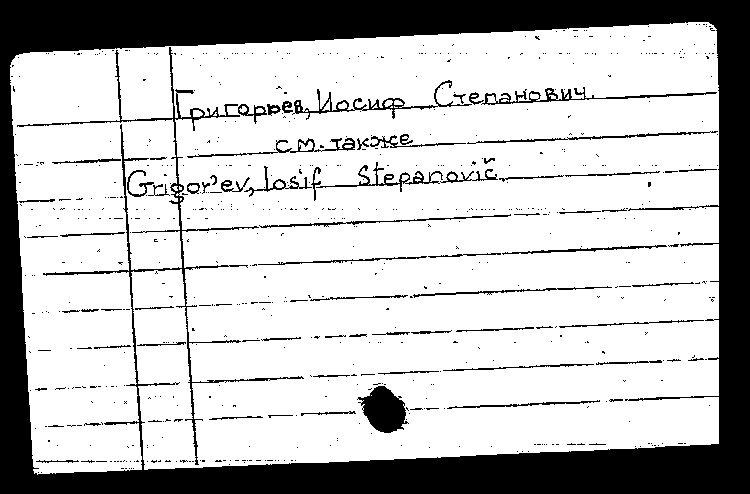 Григорьев, Иосиф Степанович.
см. также
Grigor'ev, Iosif Stepanovič.